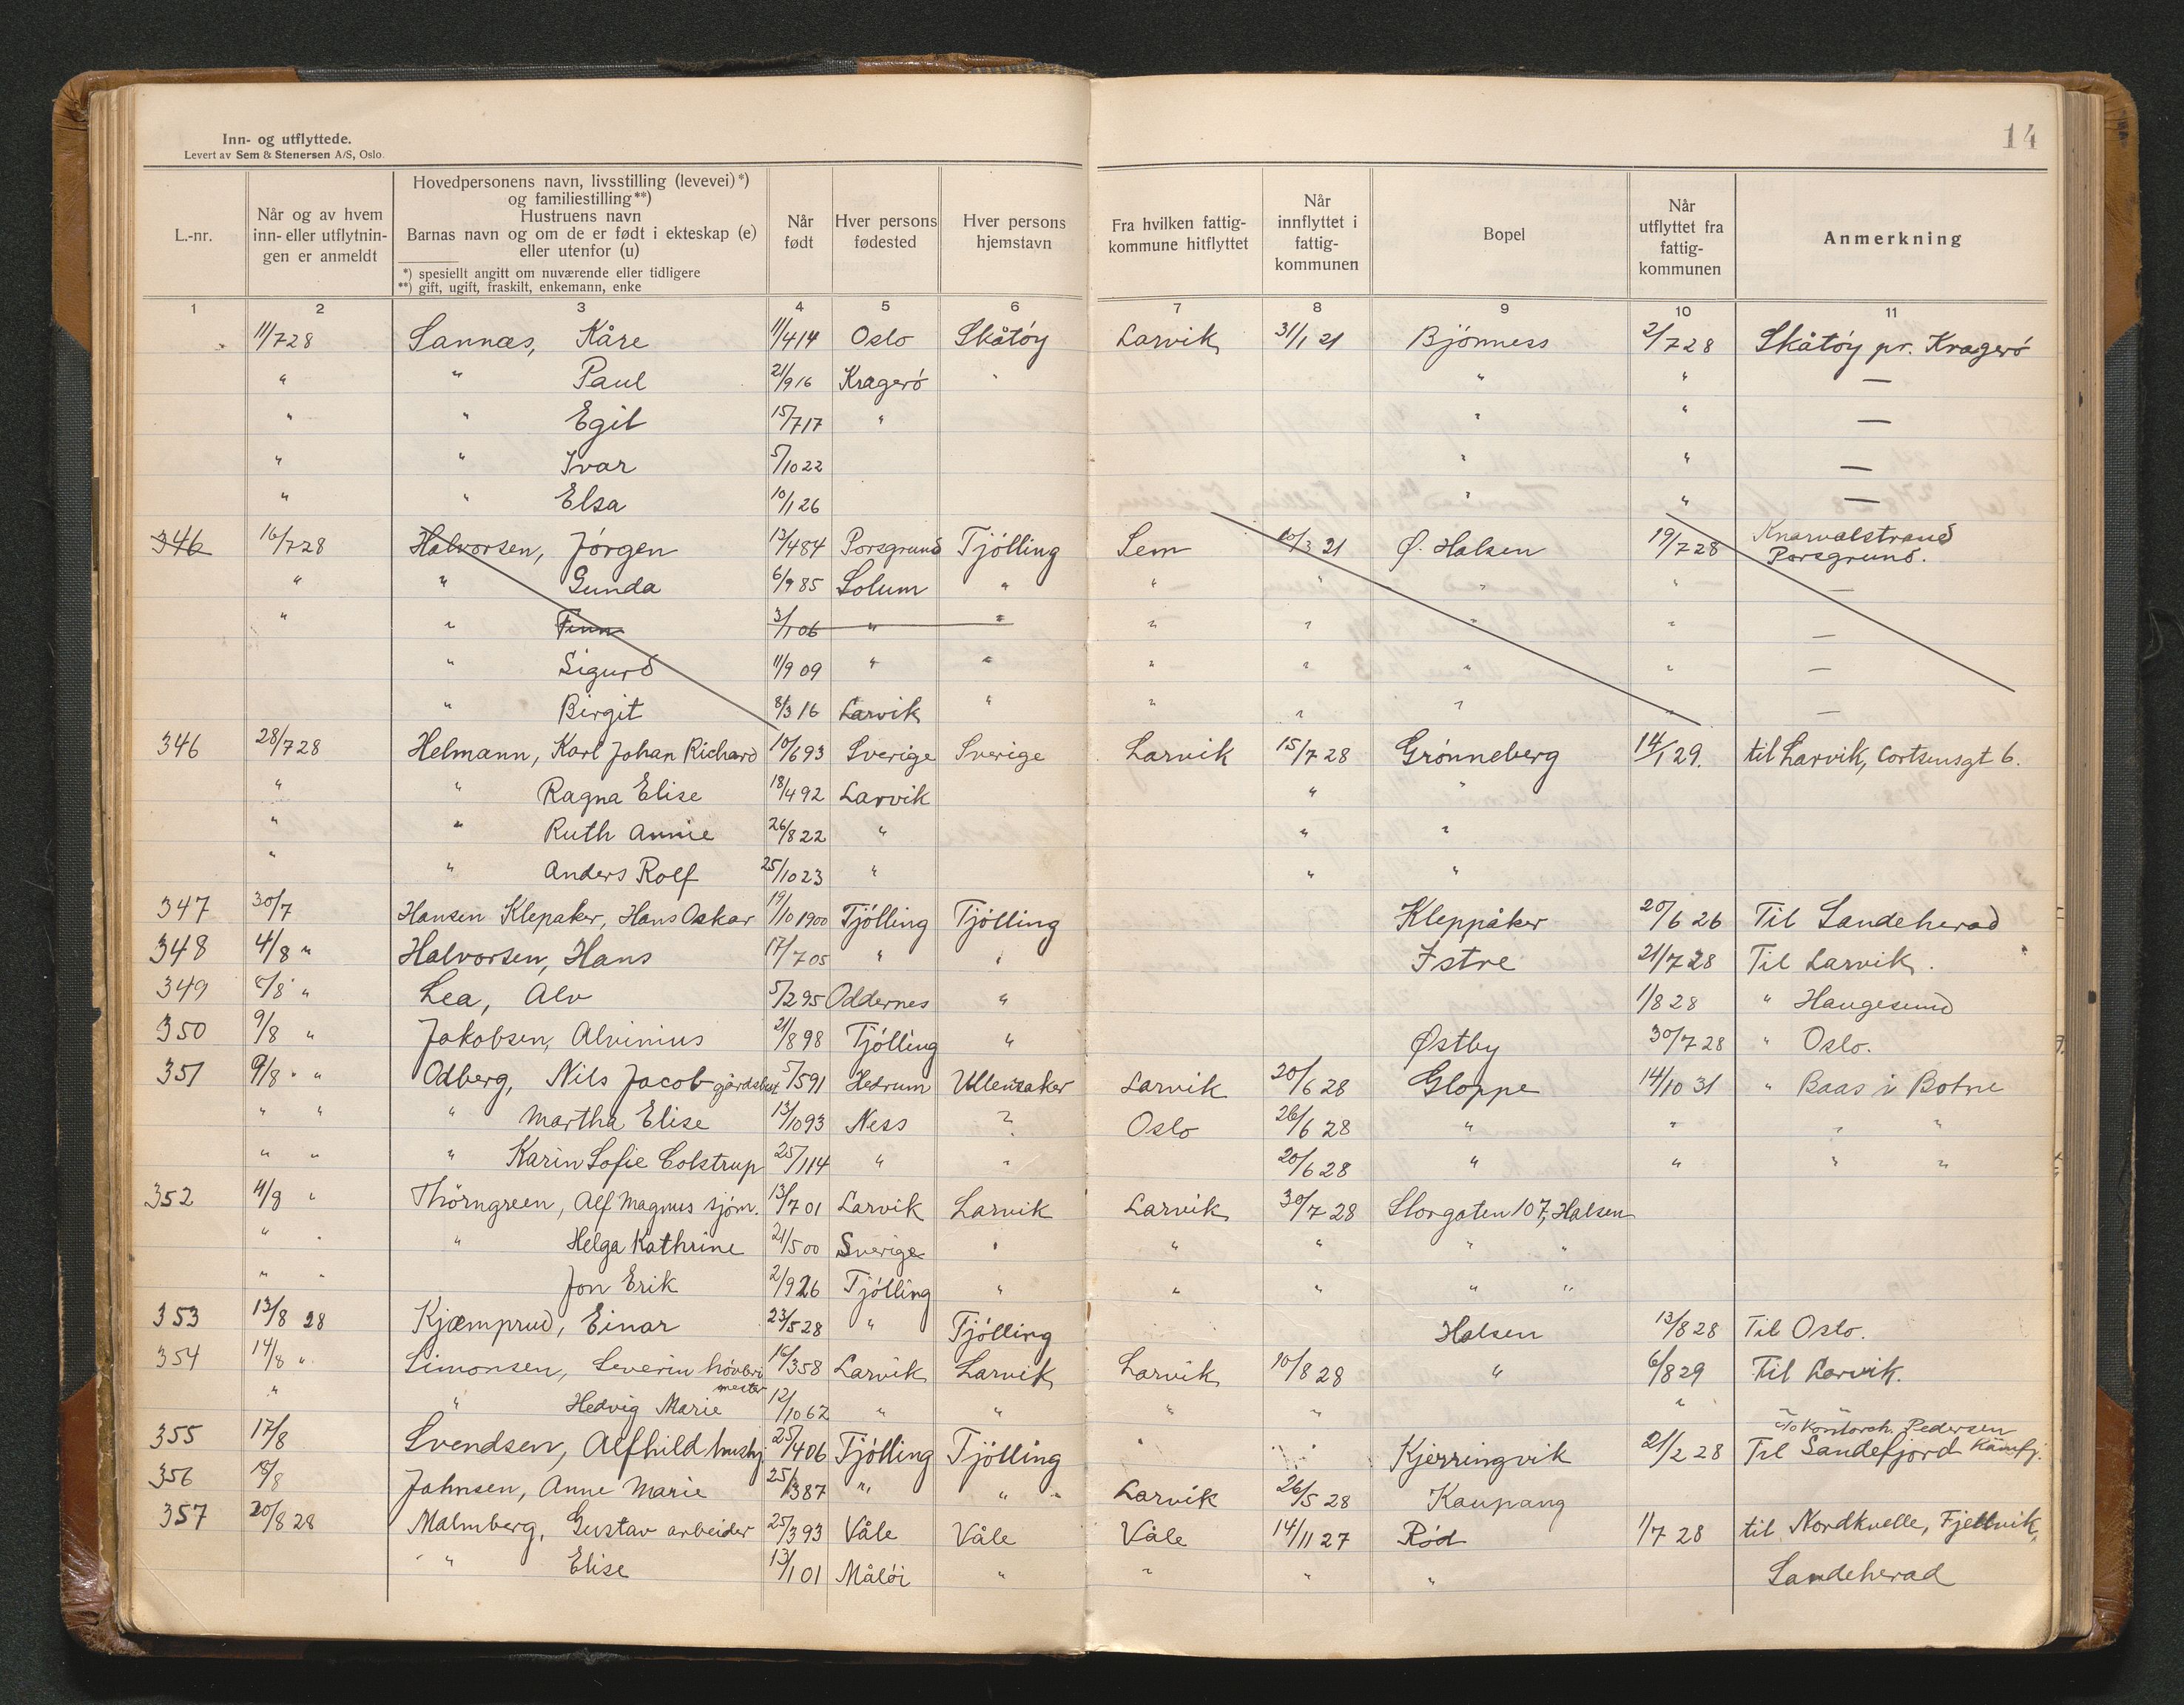 14
Inn- og utflyttede.
Levert av Sem & Stenersen A/S, Oslo.
L.-nr.
Når og av hvem
inn- eller utflytnin-
gen er anmeldt
Hovedpersonens navn, livsstilling (levevei)*)
og familiestilling**)
Hustruens navn
Barnas navn og om de er født i ekteskap (e)
eller utenfor (u)
*) spesiellt angitt om nuværende eller tidligere
**) gift, ugift, fraskilt, enkemann, enke
Når
født
Hver persons
fødested
Hver persons
hjemstavn
Fra hvilken fattig-
kommune hitflyttet
Når
innflyttet i
fattig-
kommunen
Bopel
Når
utflyttet fra
fattig-
kommunen
Anmerkning
1 2 3 4 5 6 7 8 9 10 11
11/7 28 Sannæs, Kåre 11/4 14 Oslo Skåtøy Larvik 31/1 21 Bjönness 2/7 28 Skåtøy pr. Kragerö
" " Paul 21/9 16 Kragerö " " " —
" " Egil 15/7 17 " " " —
" " Ivar 5/10 22 " " —
" " Elsa 10/1 26 " " —
346 16/7 28 Halvorsen, Jörgen 13/4 84 Porsgrund Tjölling Sem 10/3 21 Ø. Halsen 19/7 28 Knarvalstrand
Porsgrund.
" " Gunda 6/9 85 Solum " " " " " —
" " Finn 3/1 06 " " " " " " —
" Sigurd 11/9 09 " " " " " " —
" Birgit 8/3 16 Larvik " " " " " —
346 28/7 28 Helmann, Karl Johan Richard 10/6 93 Sverige Sverige Larvik 15/7 28 Grönneberg 14/1 29. til Larvik, Cortsensgt 6.
" " Ragna Elise 18/4 92 Larvik " "
" " Ruth Annie 26/8 22 " " "
" " Anders Rolf 25/10 23 " " "
347 30/7 Hansen Klepaker, Hans Oskar 19/10 1900 Tjölling Tjölling Kleppåker 20/6 26 Til Sandeherad
348 4/8 " Halvorsen, Hans 17/7 05 " " Istre 21/7 28 Til Larvik.
349 /8 " Lea, Alv 5/2 95 Oddernes " 1/8 28 " Haugesund
350 9/8 " Jakobsen, Alvinius 21/8 98 Tjölling " Østby 30/7 28 " Oslo.
351 9/8 " " Odberg, Nils Jacob 5/5 91 Hedrum Ullensaker Larvik 20/6 28 Gloppe 14/10 31 " Baas i Botne
" " " Martha Elise 13/10 93 Ness " Oslo 26/6 28 " " " "
" " " Karin Sofie Colstrup 25/1 14 " " 20/6 28 " " " "
352 11/8 " Thörngreen, Alf Magnus sjöm. 13/7 01 Larvik Larvik Larvik 30/7 28 Storgaten 107, Halsen
" " " Helga Kathrine 21/5 00 Sverige " " " " "
" " Jon Erik 2/9 26 Tjölling " " " " "
353 13/8 28 Kjæmprud, Einar 23/5 28 " Tjölling Halsen 13/8 28 Til Oslo.
354 14/8 " Simonsen, Severin hövbri 16/3 58 Larvik Larvik Larvik 10/8 28 " 6/8 29 Til Larvik.
mester
" " Hedvig Marie 12/10 62 " " " " "
355 17/8 Svendsen, Alfhild hushj 25/4 06 Tjölling Tjölling " " Kjerringvik 21/2 28 Til Sandefjord
Pedersen
356 18/8 Johnsen, Anne Marie 25/3 87 " " " Larvik 26/5 28 Kaupang
357 20/8 28 Malmberg, Gustav arbeider 25/3 93 Våle Våle Våle 14/11 27 Röd 1/7 28 til Nordkvelle, Fjellvik,
" Elise 13/1 01 Målöi " " " " Sandeherad